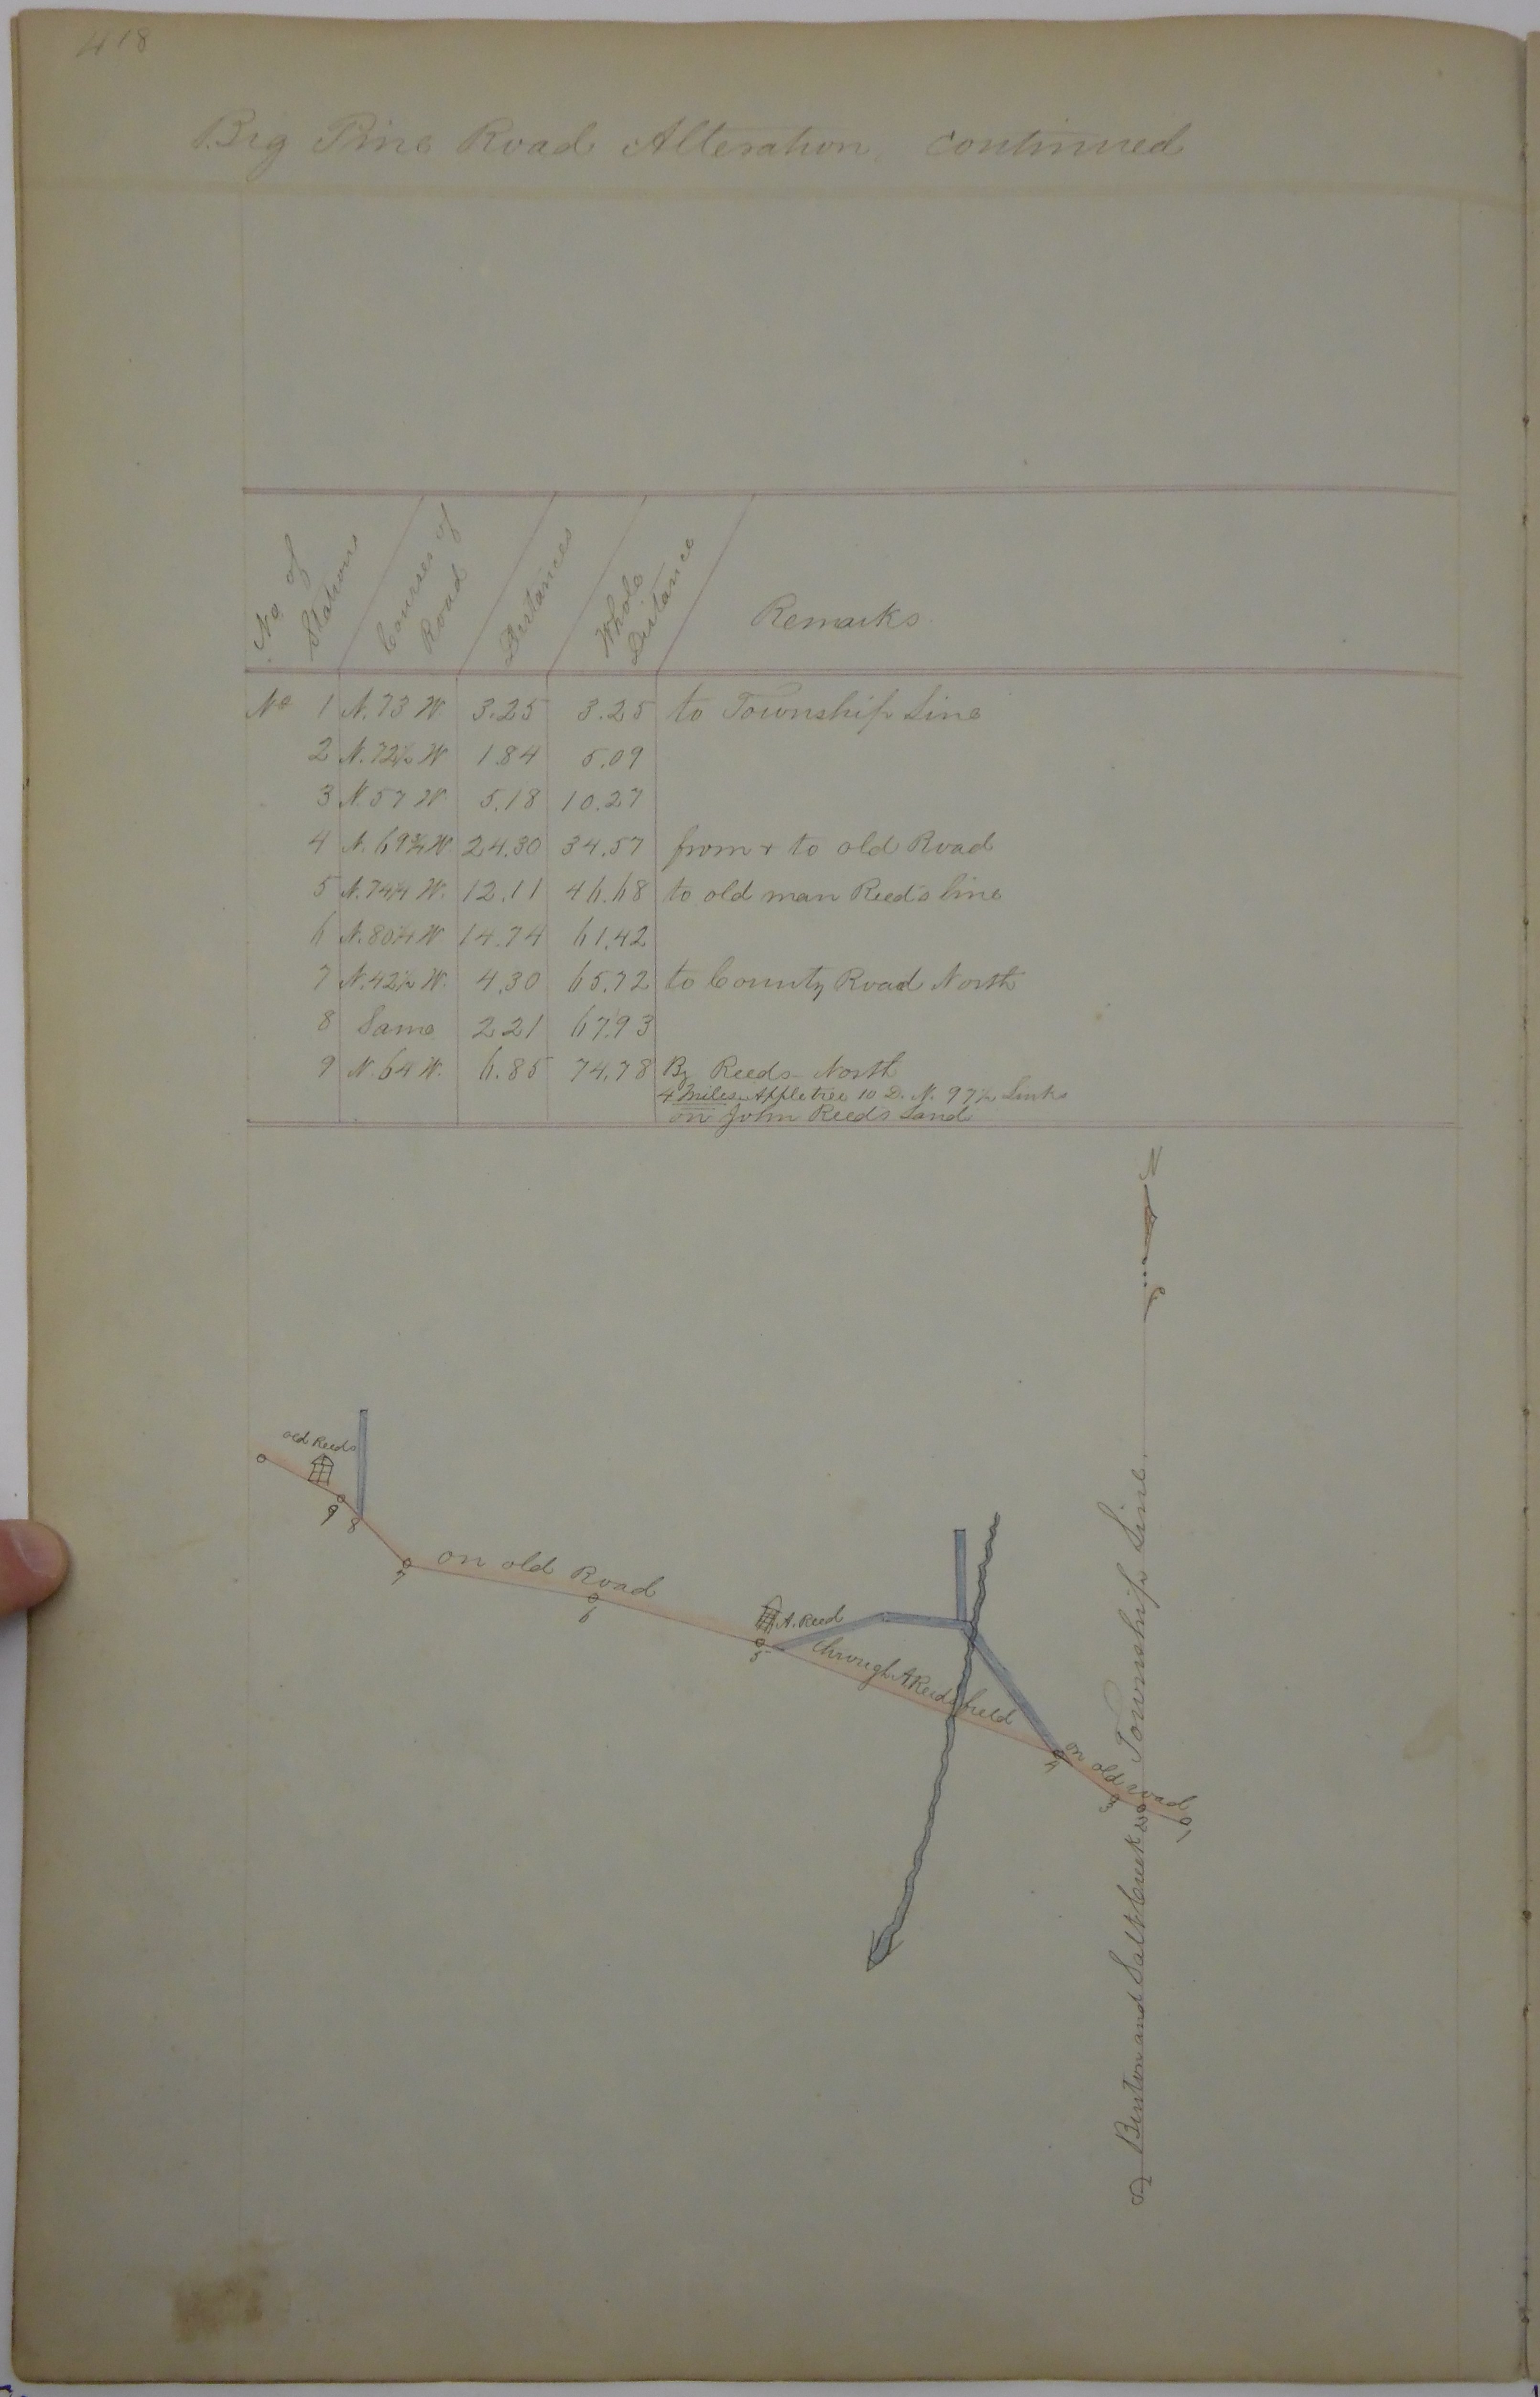 418
Big Pine Road Alteration continued
No of Stations
Courses of Road
Distances
Whole Distance
Remarks
No 1 N. 73 W 3.25 3.25 to Township Line
2 N. 72½ W 1.84 5.09
3 N. 57 W 5.18 10.27
4 N. 69¾ W 24.30 34.57 from & to old Road
5 N. 74¼ W. 12.11 46.68 to old man Reed's line
6 N. 80¼ W 14.74 61.42
7 N. 42½ W. 4.30 65.72 to County Road North
8 Same 2.21 67.93
9 N. 64 W. 6.85 74.78 By Reeds North
4 Miles Appletree 10 D. N. 97½ Links
on John Reeds Land
N
old Reeds
9
8
7
on old Road
6
A. Reed
5
through A. Reeds field
4
on old road
3
2
1
Benton and Salt Creek Township Line
S